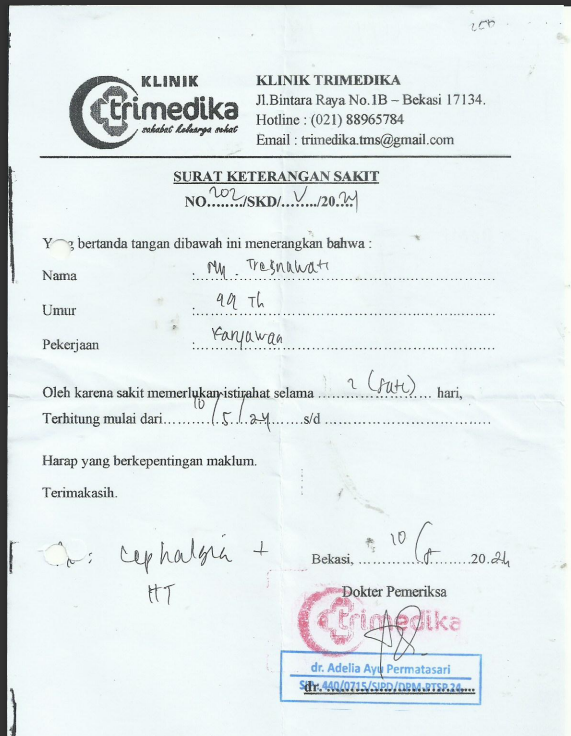 KLINIK
trimedika
sahabat keluarga sehat
KLINIK TRIMEDIKA
Jl.Bintara Raya No.1B – Bekasi 17134.
Hotline : (021) 88965784
Email : trimedika.tms@gmail.com
SURAT KETERANGAN SAKIT
NO...202.../SKD/...V.../20.24
bertanda tangan dibawah ini menerangkan bahwa :
Nama : Tresnawati
Umur : Th
Pekerjaan : Karyawan
Oleh karena sakit memerlukan istirahat selama (satu) hari,
Terhitung mulai dari 10/5/24 s/d
Harap yang berkepentingan maklum.
Terimakasih.
cephalgia +
HT
Bekasi, 10/5 20.24
Dokter Pemeriksa
trimedika
dr. Adelia Ayu Permatasari
440/0715/SIPD/DPM-PTSP.24
dr.